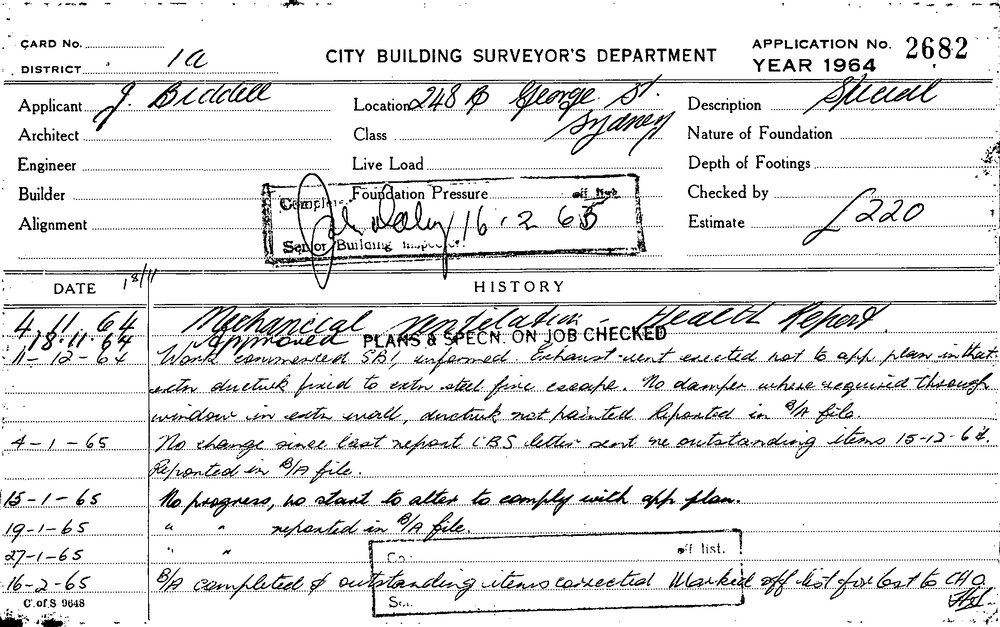 CARD No.
DISTRICT 1a
CITY BUILDING SURVEYOR'S DEPARTMENT
APPLICATION No. 2682
YEAR 1964
Applicant J. Biddell
Location 248 B George St.
Sydney
Description Special
Architect
Class
Nature of Foundation
Engineer
Live Load
Depth of Footings
Builder
Foundation Pressure
Checked by
Alignment
Estimate £220
off list
16.2.65
Senior Building Inspector
DATE 18/11
HISTORY
4.11.64 Mechanical Ventilation - Health Report.
18.11.64 Approved PLANS & SPECN. ON JOB CHECKED
11-12-64 Work commenced SBI, informed Exhaust vent erected not to app plan in that
extn ductwk fixed to extn steel fire escape. No damper where required through
window in extn wall, ductwk not painted Reported in B/A file.
4-1-65 No change since last report CBS letter sent re outstanding items 15-12-64.
Reported in B/A file.
15-1-65 No progress, no start to alter to comply with app plan.
19-1-65 " " reported in B/A file.
27-1-65 " "
16-2-65 B/A completed & outstanding items corrected Marked off list for to CHO
Co. off list.
C. of S 9648